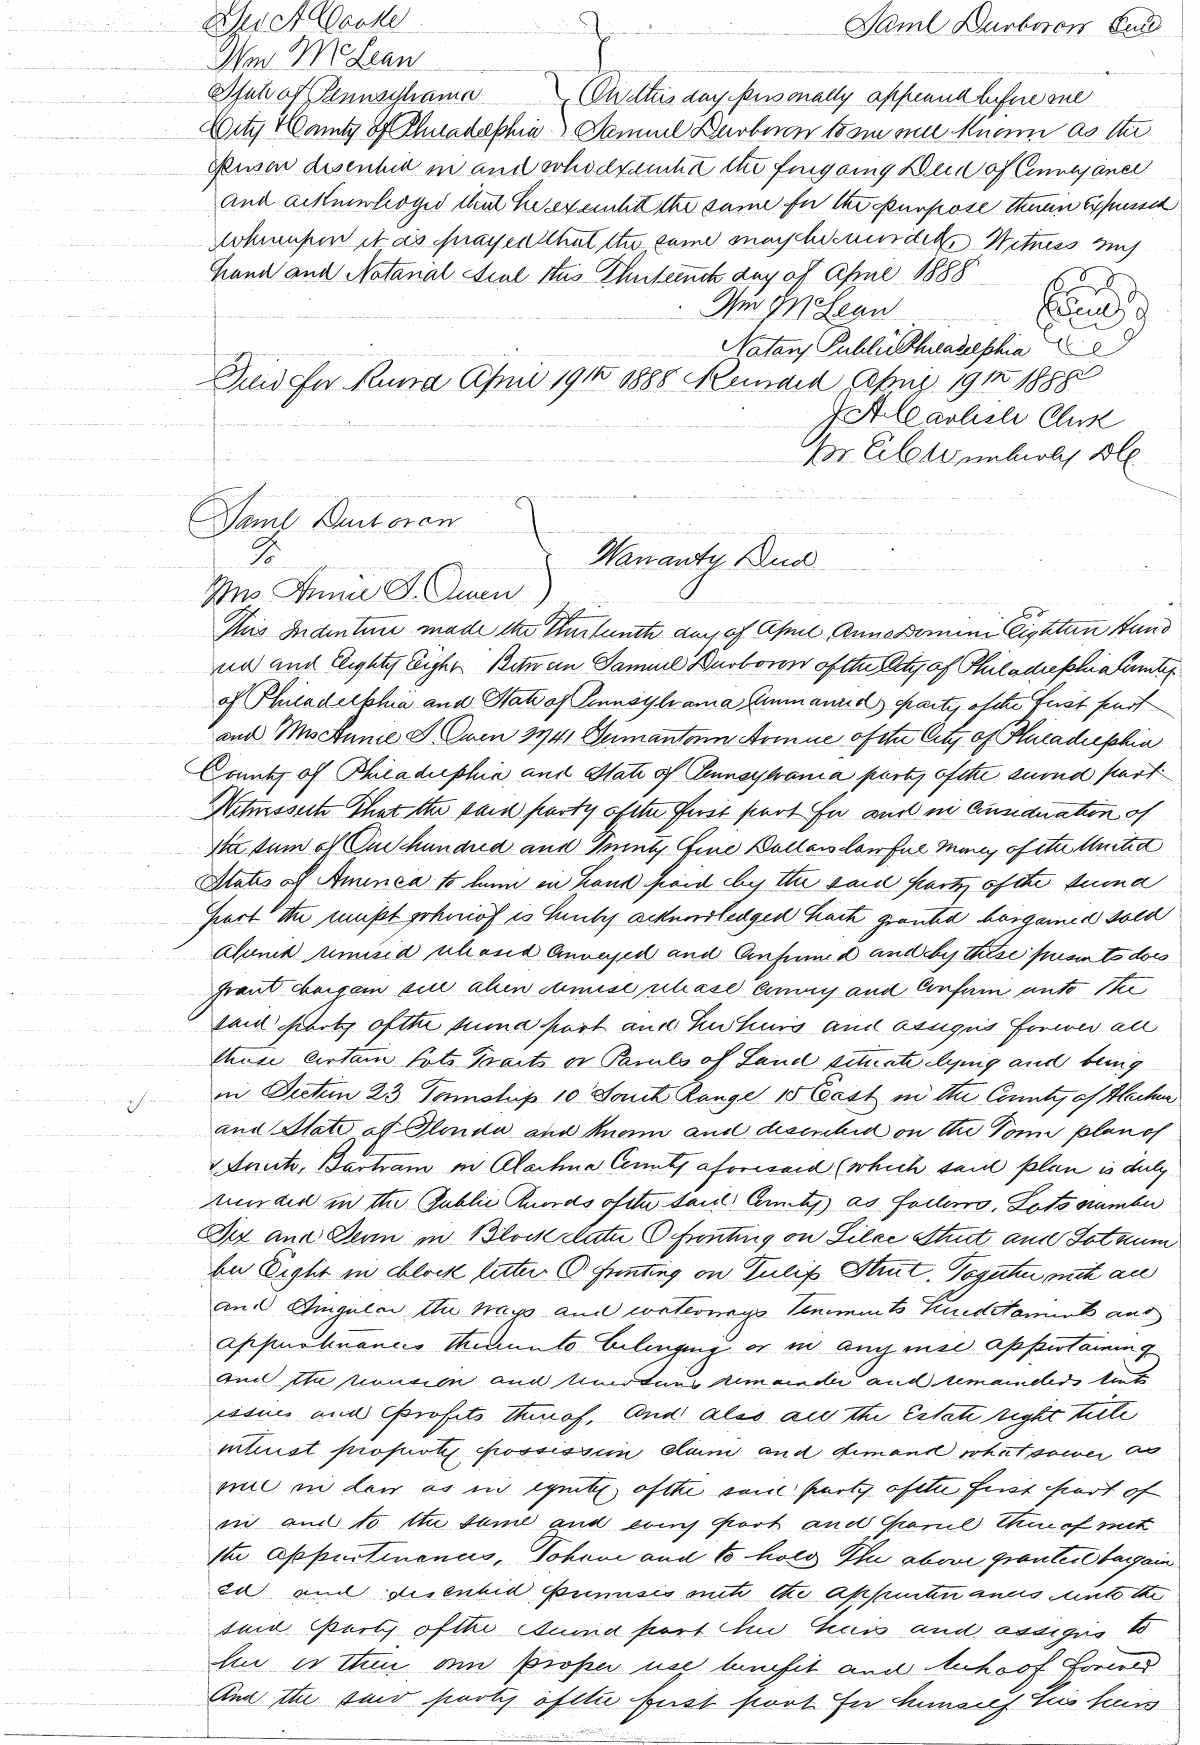 Geo A Cooke Saml Durborow Seal
Wm McLean
State of Pennsylvania } On this day personally appeared before me
City & County of Philadelphia } Samuel Durborow to me well known as the
person described in and who executed the foregoing Deed of Conveyance
and acknowledged that he executed the same for the purpose therein expressed
whereupon it is prayed that the same may be recorded. Witness my
hand and Notarial Seal this Thirteenth day of April 1888
Wm McLean Seal
Notary Public Philadelphia
Filed for Record April 19th 1888 Recorded April 19th 1888
J A Carlisle Clerk
Pr E C Wimberly DC
Saml Durborow
To } Warranty Deed
Mrs Annie S. Owen
This Indenture made the Thirteenth day of April Anno Domini Eighteen Hund
red and Eighty Eight Between Samuel Durborow of the City of Philadelphia County
of Philadelphia and State of Pennsylvania (unmarried) party of the first part
and Mrs Annie S. Owen Germantown Avenue of the City of Philadelphia
County of Philadelphia and State of Pennsylvania party of the second part
Witnesseth That the said party of the first part for and in consideration of
the sum of One hundred and Twenty five Dollars lawful money of the United
States of America to him in hand paid by the said party of the second
part the receipt whereof is hereby acknowledged hath granted bargained sold
aliened remised released conveyed and confirmed and by these presents does
grant bargain sell alien remise release convey and confirm unto the
said party of the second part and her heirs and assigns forever all
those certain Lots Tracts or Parcels of Land situate lying and being
in Section 23 Township 10 South Range 18 East in the County of Alachua
and State of Florida and known and described on the Town plan of
South, Bartram in Alachua County aforesaid (which said plan is duly
recorded in the Public Records of the said County) as follows, Lots number
Six and Seven in Block letter O fronting on Lilac Street and Lot num
ber Eight in block letter O fronting on Tulip Street. Together with all
and Singular the ways and waterways tenements hereditaments and
appurtenances thereunto belonging or in any wise appertaining
and the reversion and reversions remainder and remainders rents
issues and profits thereof. And also all the Estate right title
interest property possession claim and demand whatsoever as
well in law as in equity of the said party of the first part of
in and to the same and every part and parcel thereof with
the appurtenances, To have and to hold The above granted bargain
ed and described premises with the appurtenances unto the
said party of the second part her heirs and assigns to
her or their own proper use benefit and behoof forever
And the said party of the first part for himself his heirs